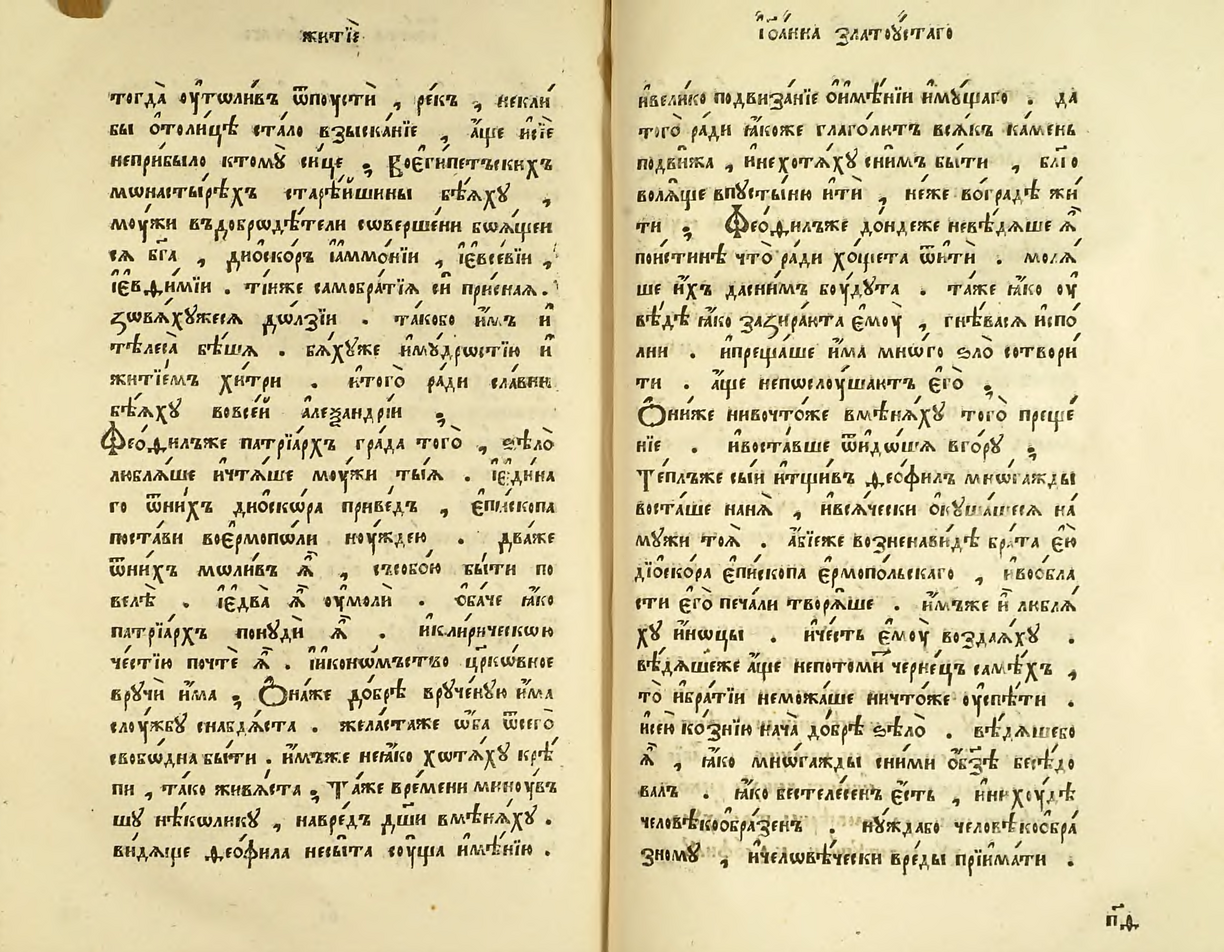 житїѐ
тогда̀ оу҆то́ливъ ѿпоустѝ , ре́къ , неклѝ
бы ѻ҆толи́цѣ ста́ло взыска́нїе , а҆́ще и҆сїѐ
неприбы́ло ктомꙋ̀ си́це ; воегі́петъскихъ
мѡнасты́рѣхъ старѣ́йшины бѣ́ѧхꙋ ,
моу́жи въдобродѣ́тели сѡверше́ни боѧ́щеи
сѧ бг҃а , дио́скоръ і҆аммо́нїи , і҆е҆ѵсе́вїи ,
і҆е҆ѵѳи́мїи . ті́иже самобра́тїѧ сѝ при́снаѧ .
ꙁовѧ́хꙋжесѧ до́лзїи . тако́бо и҆́мъ и҆
тѣлеса̀ бѣ́шѧ . бѧ́хꙋже и҆мꙋ́дростїю и҆
житїе́мъ хи́три . и҆того̀ ра́ди сла́вни
бѣ́ѧхꙋ вовсе́й а҆леѯандрі́и ;
Ѳео́ѳилъже патрїа́рхъ гра́да того̀ , ѕѣ́ло
люблѧ́ше и҆чтѧ́ше моу́жи ты́ѧ . і҆е҆ди́на
го ѿни́хъ дио́скѡра приве́дъ , е҆пи́скопа
поста́ви воермопо́ли ноу́ждею . два́же
ѿни́хъ мо́ливъ ѧ҆̀ , съсобо́ю бы́ти по
велѣ̀ . і҆е҆два̀ ѧ҆̀ оу҆молѝ . ѻ҆ба́че ꙗ҆́ко
патрїа́рхъ понꙋдѝ ѧ҆̀ . и҆клири́ческою
че́стїю почтѐ ѧ҆̀ . і҆и҆конѡ́мъство цр҃ко́вное
врꙋчѝ и҆́ма ; Ѻ҆на́же до́брѣ врꙋче́нꙋю и҆́ма
слоу́жбꙋ снабдѧ́ста . жела́стаже ѡ҆́ба ѿсего̀
свобо́дна бы́ти . и҆́мъже неꙗ҆́ко хотѧ́хꙋ крѣ́
пи , та́ко живѧ́ста ; Та́же вре́мени миноу́въ
шꙋ нѣ́колику , навре́дъ дш҃и вмѣнѧ́хꙋ .
ви́дѧще ѳео́фила несы́та соу́ща и҆мѣ́нїю .
і҆ѡа́нна златоꙋ́стаго
и҆вели́ко подвиза́нїе ѻ҆и҆мѣ́нїи и҆мꙋ́щаго . да
того̀ ра́ди ꙗ҆́коже глаго́лютъ всѧ́къ ка́мень
подви́жа , и҆нехотѧ́хꙋ сни́мъ бы́ти , бл҃го
волѧ́ще впꙋсты́ню и҆тѝ , не́же во́градѣ жи́
ти ; Ѳео́ѳилъже до́ндеже невѣ́дѧше ѧ҆̀
пои́стинѣ что̀ ра́ди хо́щета ѿи́ти . молѧ́
ше и҆́хъ дасни́мъ боу́дута . та́же ꙗ҆́ко оу҆
вѣ́дѣ ꙗ҆́ко зазира́юта е҆моу̀ , гнѣ́васѧ и҆спо́
лни . и҆преща́ше и҆́ма мно́го ѕло̀ сотвори́
ти . а҆́ще непослоу́шаютъ е҆го̀ ;
Ѻ҆ни́же нивочто́же вмѣнѧ́хꙋ того̀ преще́
нїе . и҆воста́вше ѿидо́шѧ вго́рꙋ ;
Те́плъже сы́й и҆тщи́въ ѳео́филъ мно́гажды
воста́ше нанѧ̀ , и҆всѧ́чески ѻ҆кꙋша́шесѧ на́
мꙋжи тоѧ̀ . а҆́бїеже возненави́дѣ бра́та е҆ю̀
дїо́скора е҆пи́скопа е҆рмопо́льскаго , и҆вообла́
сти е҆го̀ печа́ли творѧ́ше . и҆́мъже и҆ люблѧ́
хꙋ и҆́ноцы . и҆че́сть е҆моу̀ воздаѧ́хꙋ .
вѣ́дѧшеже а҆́ще непото́ми черне́цъ самѣ́хъ ,
то̀ и҆бра́тїи немо́жаше ничто́же оу҆спѣ́ти .
и҆се́ю ко́знїю нача̀ до́брѣ ѕѣ́ло . вѣ́дѧшебо
ѧ҆̀ , ꙗ҆́ко мно́гажды сни́ми ѻ҆бз҃ѣ бесѣ́до
валъ . ꙗ҆́ко бестеле́сенъ е҆́сть , и҆нихꙋ́дѣ
человѣкоо́бра́зенъ . нꙋ́ждабо человѣ́кообра́
зномꙋ , и҆человѣ́чески вре́ды прїима́ти .
п҃д